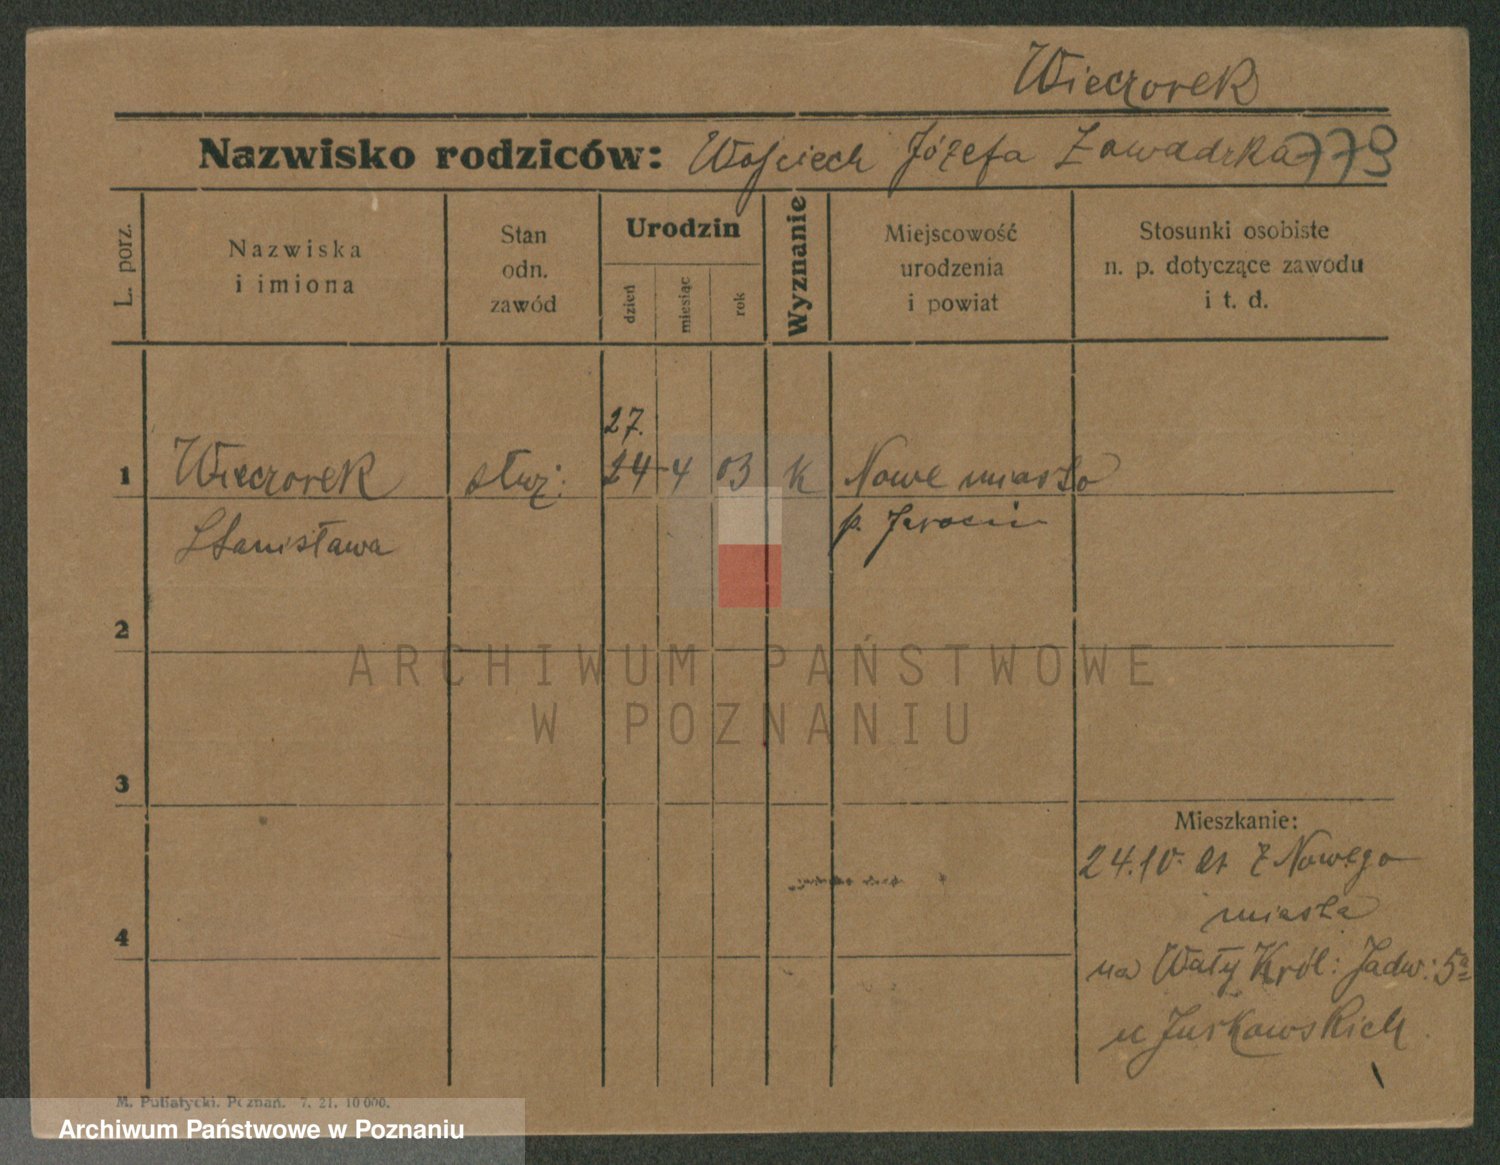 Wieczorek
Nazwisko rodziców: Wojciech Józefa Zawadzka 779
L. porz.
Nazwiska
i imiona
Stan
odn.
zawód
Urodzin
dzień
miesiąc
rok
Wyznanie
Miejscowość
urodzenia
i powiat
Stosunki osobiste
n. p. dotyczące zawodu
i t. d.
27.
1 Wieczorek służ: 24 4 03 K Nowe miasto
Stanisława p. Jarocin
2
3
4
Mieszkanie:
24.10. z Nowego
miasta
na Wały Król: Jadw: 5a
u Jurkowskich
ARCHIWUM PAŃSTWOWE
W POZNANIU
M. Putiatycki, Poznań. 7. 21. 10 000.
Archiwum Państwowe w Poznaniu